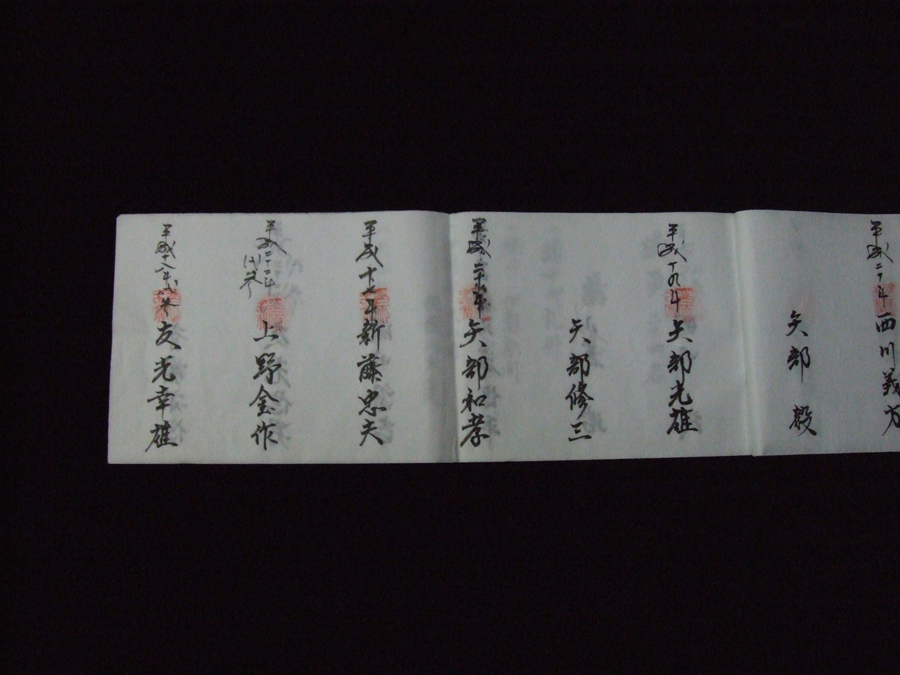 平成二十年
西川義方
矢部 毅
平成十九年
矢部光雄
矢部修三
矢部和孝
平成十七年
新藤忠夫
平成二十二年
代参
上野金作
平成十八年代参
友光幸雄